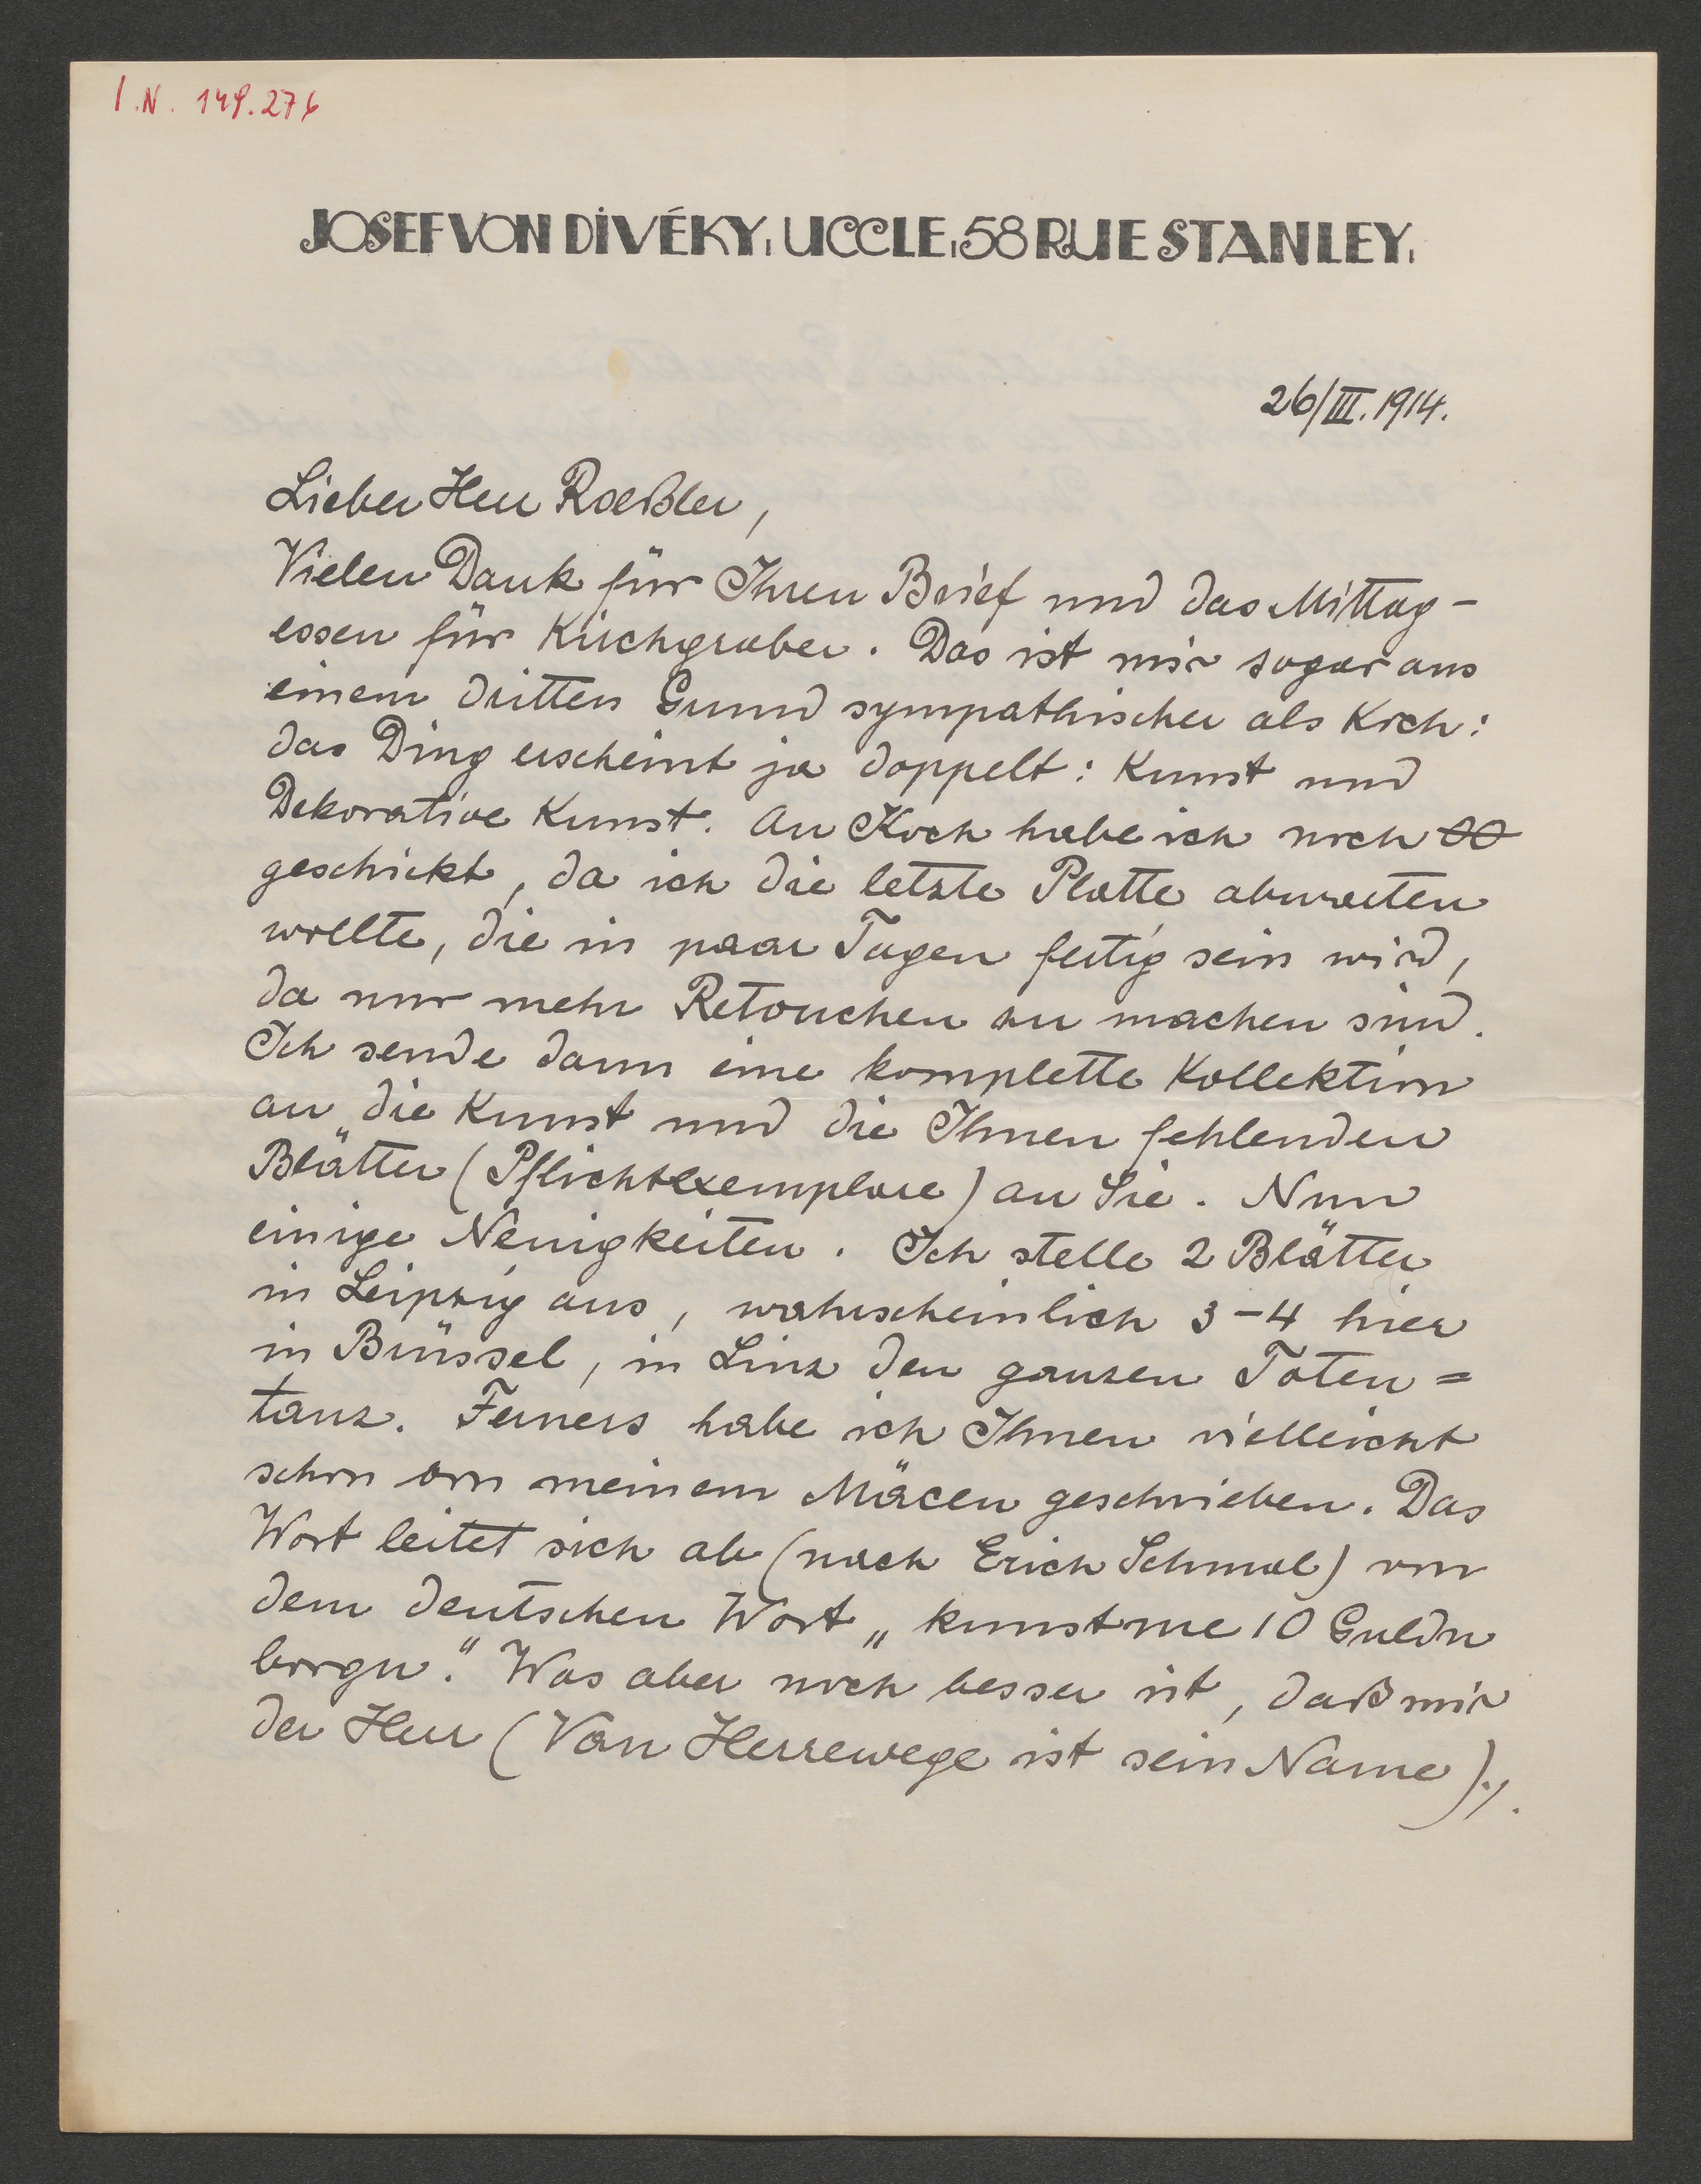 I.N. 149.276
JOSEF VON DIVÉKY, UCCLE, 58 RUE STANLEY,
26/III. 1914.
Lieber Herr Roeßler,
Vielen Dank für Ihren Brief und das Mittag-
essen für Kirchgraber. Das ist mir sogar aus
einem dritten Grund sympathischer als Koch:
das Ding erscheint ja doppelt: Kunst und
Dekorative Kunst. An Koch habe ich noch 00
geschickt, da ich die letzte Platte abwarten
wollte, die in paar Tagen fertig sein wird,
da nur mehr Retouchen zu machen sind.
Ich sende dann eine komplette Kollektion
an „die Kunst und die Ihnen fehlenden
Blätter (Pflichtexemplare) an Sie. Nun
einige Neuigkeiten. Ich stelle 2 Blätter
in Leipzig aus, wahrscheinlich 3-4 hier
in Brüssel, in Linz den ganzen Toten=
tanz. Ferners habe ich Ihnen vielleicht
schon von meinem Mäcen geschrieben. Das
Wort leitet sich ab (nach Erich Schmal) von
dem deutschen Wort „kunst me 10 Guldn
borgn." Was aber noch besser ist, daß mir
der Herr (Van Herrewege ist sein Name) ./.